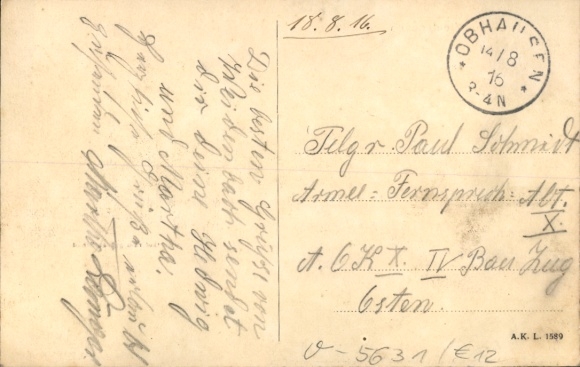 Die besten Grüße von
sendet
dir dein Hedwig
und Martha.
Herzliche Grüße
Martha
18.8.16.
OBHAUSEN
14/8
16
3-4N
Telgr Paul Schmidt
Armee-Fernsprech-Abt.
X.
A. O K X. IV Bau Zug
Osten.
A.K.L. 1589
V-5631/€12